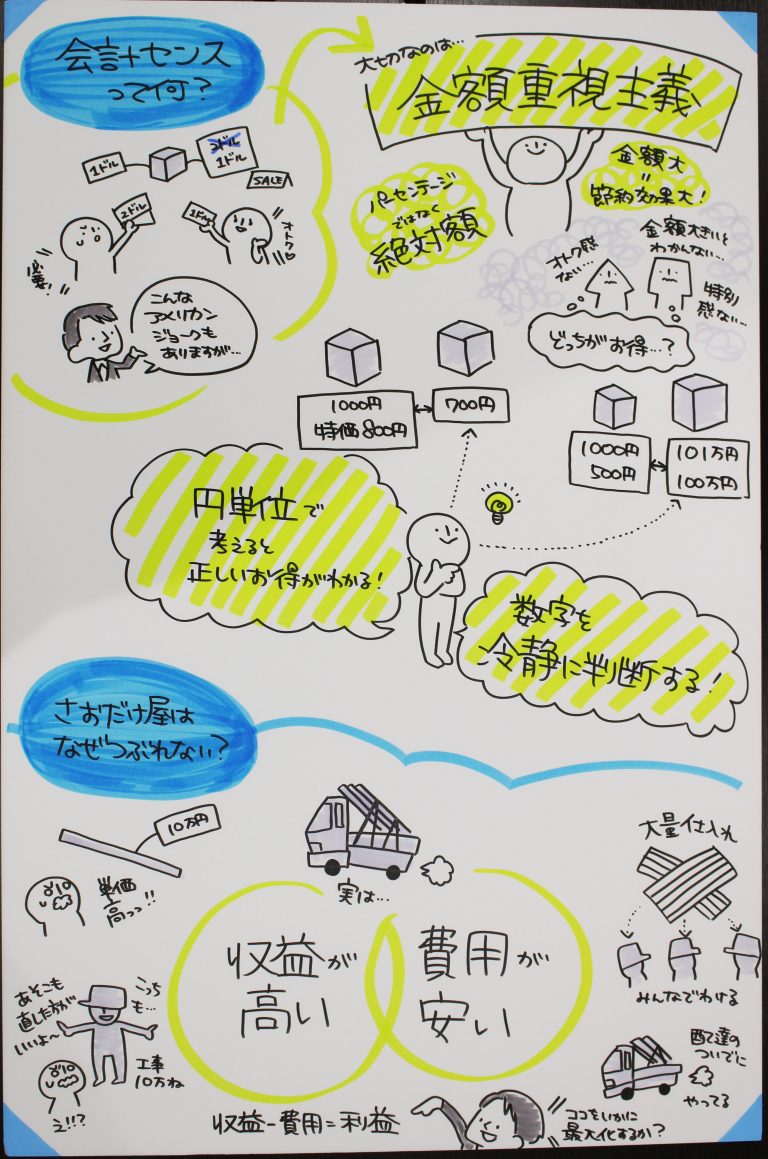 会計センス
って何?
1ドル
2ドル
1ドル
SALE
2ドル
1ドル
必要!
オトク♡
こんな
アメリカン
ジョークも
ありますが…
大切なのは…
金額重視主義
パーセンテージ
ではなく
絶対額
金額大
=
節約効果大!
オトク感
ない…
金額大きいと
わかんない…
特別
感ない…
どっちがお得…?
1000円
特価800円
700円
1000円
500円
101万円
100万円
円単位で
考えると
正しいお得がわかる!
数字を
冷静に判断する!
さおだけ屋は
なぜつぶれない?
10万円
単価
高っっ!!
実は…
収益が
高い
費用が
安い
大量仕入れ
みんなでわける
あそこも
直した方が
いいよ〜
こっち
も…
工事
10万ね
え!!?
配達の
ついでに
やってる
収益-費用=利益
ココをいかに
最大化するか?